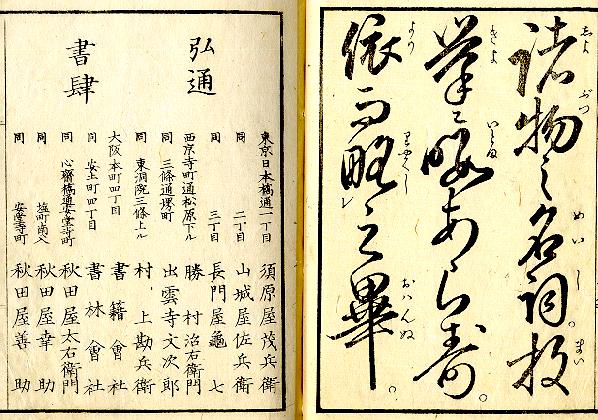 諸物之名詞枚
挙ニ暇あらず。
依而略之畢。
弘通
書肆
東京日本橋通一丁目 須原屋茂兵衛
同 二丁目 山城屋佐兵衛
同 三丁目 長門屋龜七
西京寺町通松原下ル 勝村治右衛門
同 三條通堺町 出雲寺文次郎
同 東洞院三條上ル 村上勘兵衛
大阪本町四丁目 書籍會社
同 安土町四丁目 書林會社
同 心齋橋通安堂寺町 秋田屋太右衛門
同 塩町南へ 秋田屋幸助
同 安堂寺町 秋田屋善助